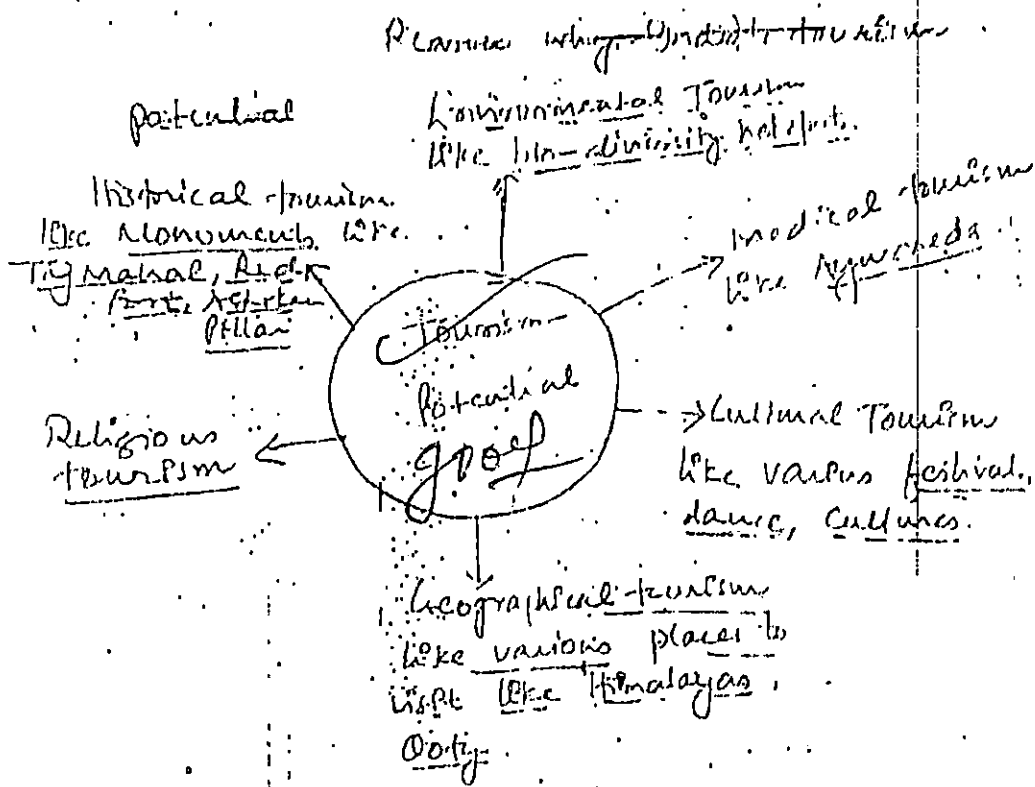 potential
Environmental Tourism
like bio-diversity hotspots.
Historical tourism
like Monuments like
Taj Mahal, Red
Fort, Ashokan
Pillar
medical tourism
like Ayurveda.
Tourism
Potential
good
Religious
tourism
Cultural Tourism
like various festival,
dance, cultures.
Geographical tourism
like various places to
visit like Himalayas,
Ooty.